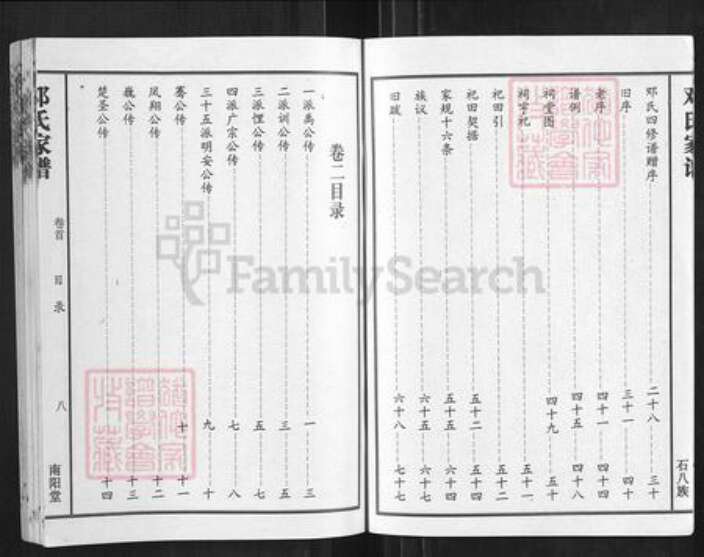 邓氏四修谱赠序 二十八 三十
旧序 三十一 四十
老序 四十一 四十四
谱例 四十五 四十八
祠堂图 四十九 五十
祠宇记 五十一
祀田引 五十二
祀田契据 五十二 五十四
家规十六条 五十五 六十四
族议 六十五 六十七
旧跋 六十八 七十七
石八族
卷二目录
一派禹公传 一 三
二派训公传 三 五
三派悝公传 五 七
四派广宗公传 七 八
三十五派明安公传 九 十
骞公传 十 十一
凤翔公传 十二
巍公传 十三
楚圣公传 十四
邓氏家谱
卷首
目录
八
南阳堂
FamilySearch